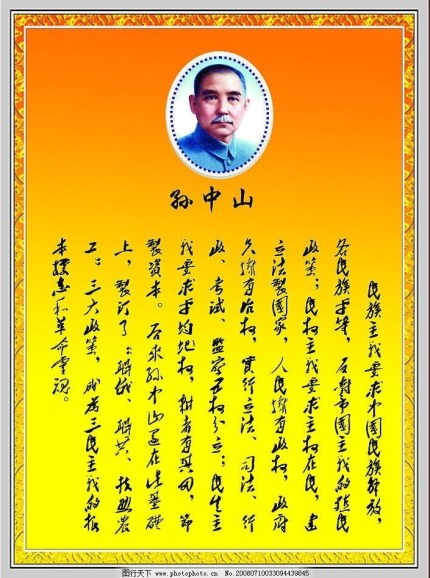 孙中山
民族主义要求中国民族解放，
各民族平等，反对帝国主义的殖民
政策；民权主义要求主权在民，建
立法製国家，人民拥有政权，政府
拥有治权，实行立法、司法、行
政、考试、监察五权分立；民生主
义要求平均地权，耕者有其田，节
製资本。后来孙中山还在此基礎
上，製订了：聯俄、聯共、扶助農
工：三大政策，成为三民主义的根
本標志和革命灵魂。
图行天下 www.photophoto.cn No.20080710033094439845